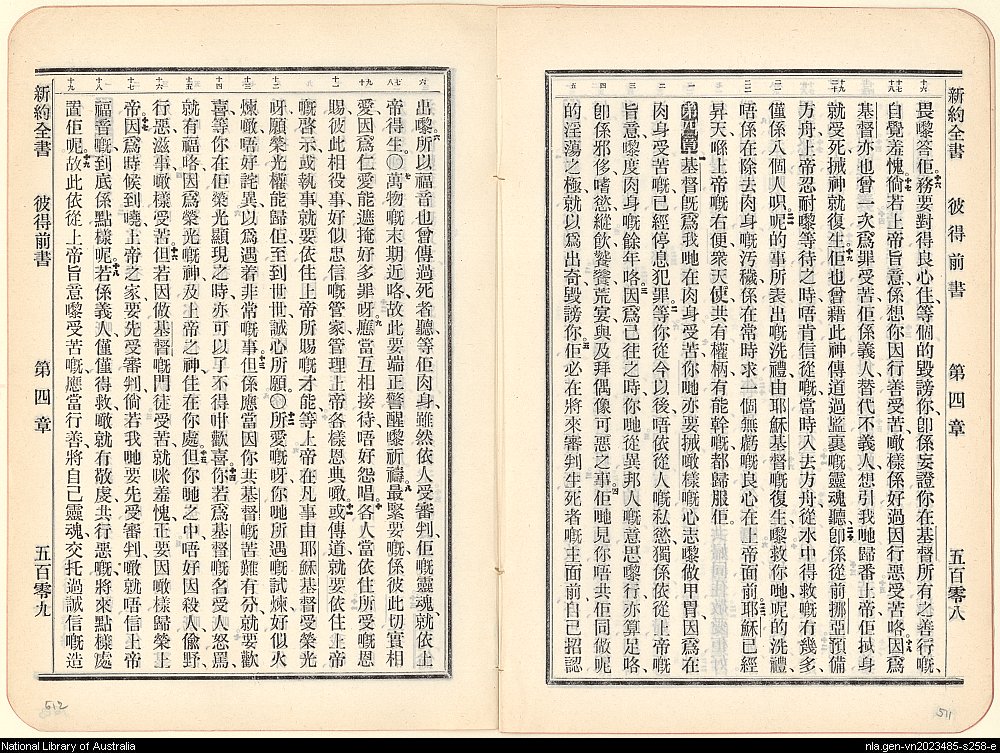 新約全書 彼得前書 第四章 五百零八
畏嚟答佢、十六務要對得良心住、等個的毀謗你、卽係妄證你在基督所有之善行嘅、
自覺羞愧、十七倘若上帝旨意係想你因行善受苦、噉樣係好過因行惡受苦咯、十八因爲
基督亦也曾一次爲罪受苦、佢係義人、替代不義人、想引我哋歸番上帝、佢㧜身
就受死、㧜神就復生、十九佢也曾藉此神傳道過監裏嘅靈魂聽、二十卽係從前挪亞預備
方舟、上帝忍耐嚟等待之時、唔肯信從嘅、當時入去方舟、從水中得救嘅、有幾多、
僅係八個人呮、二一呢的事所表出嘅洗禮、由耶穌基督嘅復生嚟救你哋、呢的洗禮、
唔係在除去肉身嘅汚穢、係在常時求一個無虧嘅良心在上帝面前、二二耶穌已經
昇天喺上帝嘅右便、衆天使、共有權柄有能幹嘅、都歸服佢。
第四章 一基督旣爲我哋在肉身受苦、你哋亦要㧜噉樣嘅心志嚟做甲冑、因爲在
肉身受苦嘅、已經停息犯罪、二等你從今以後、唔依從人嘅私慾、獨係依從上帝嘅
旨意、嚟度肉身嘅餘年咯、三因爲已往之時、你哋從異邦人嘅意思嚟行、亦算足咯、
卽係邪侈、嗜慾、縱飲、饕餮、荒宴、與及拜偶像可惡之事、四佢哋見你唔共佢同做呢
的淫蕩之極、就以爲出奇、毀謗你、五佢必在將來審判生死者嘅主面前自己招認
五
新約全書 彼得前書 第四章 五百零九
出嚟、六所以福音也曾傳過死者聽、等佢肉身雖然依人受審判、佢嘅靈魂、就依上
帝得生、〇七萬物嘅末期近咯、故此要端正警醒嚟祈禱、八最緊要嘅、係彼此切實相
愛、因爲仁愛能遮掩好多罪呀、九應當互相接待、唔好怨唱、十各人當依住所受嘅恩
賜、彼此相役事、好似忠信嘅管家、管理上帝各樣恩典噉、十一或傳道、就要依住上帝
嘅啓示、或執事、就要依住上帝所賜嘅才能、等上帝在凡事由耶穌基督受榮光
呀、願榮光權能歸佢、至到世世、誠心所願。〇十二所愛嘅呀、你哋所遇嘅試煉、好似火
煉噉、唔好詫異、以爲遇着非常嘅事、十三但係應當因你共基督嘅苦難有分、就要歡
喜、等你在佢榮光顯現之時、亦可以了不得咁歡喜、十四你若爲基督嘅名受人怒罵、
就有福咯、因爲榮光嘅神、及上帝之神、住在你處、十五但你哋之中、唔好因殺人、偸野、
行惡、滋事、噉樣受苦、十六但若因做基督嘅門徒受苦、就咪羞愧、正要因噉樣歸榮上
帝、十七因爲時候到嘵、上帝之家、要先受審判、倘若我哋要先受審判、噉就唔信上帝
福音嘅、到底係點樣呢、十八若係義人僅僅得救、噉就有敬虔共行惡嘅、將來點樣處
置佢呢、十九故此依從上帝旨意嚟受苦嘅、應當行善、將自己靈魂交托過誠信嘅造
512
511
National Library of Australia
nla.gen-vn2023485-s258-e